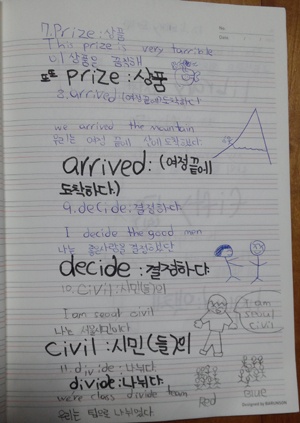 7. Prize : 상품
This prize is very tarrible
이 상품은 끔찍해
prize : 상품
8. arrived (여정 끝에) 도착하다
we arrived the mountain
우리는 여정 끝에 산에 도착했다
arrived : (여정 끝에
도착하다.)
9. decide : 결정하다.
I decide the good men
나는 좋은사람을 결정했단
decide : 결정하다
10. civil : 시민(들)의
I am seoul civil
나는 서울시민이다
I am
seoul
civil
civil : 시민 (들)의
11. divide : 나뉘다.
divide : 나뉘다.
were class divide team
우리는 팀으로 나뉘었다
Red
Blue